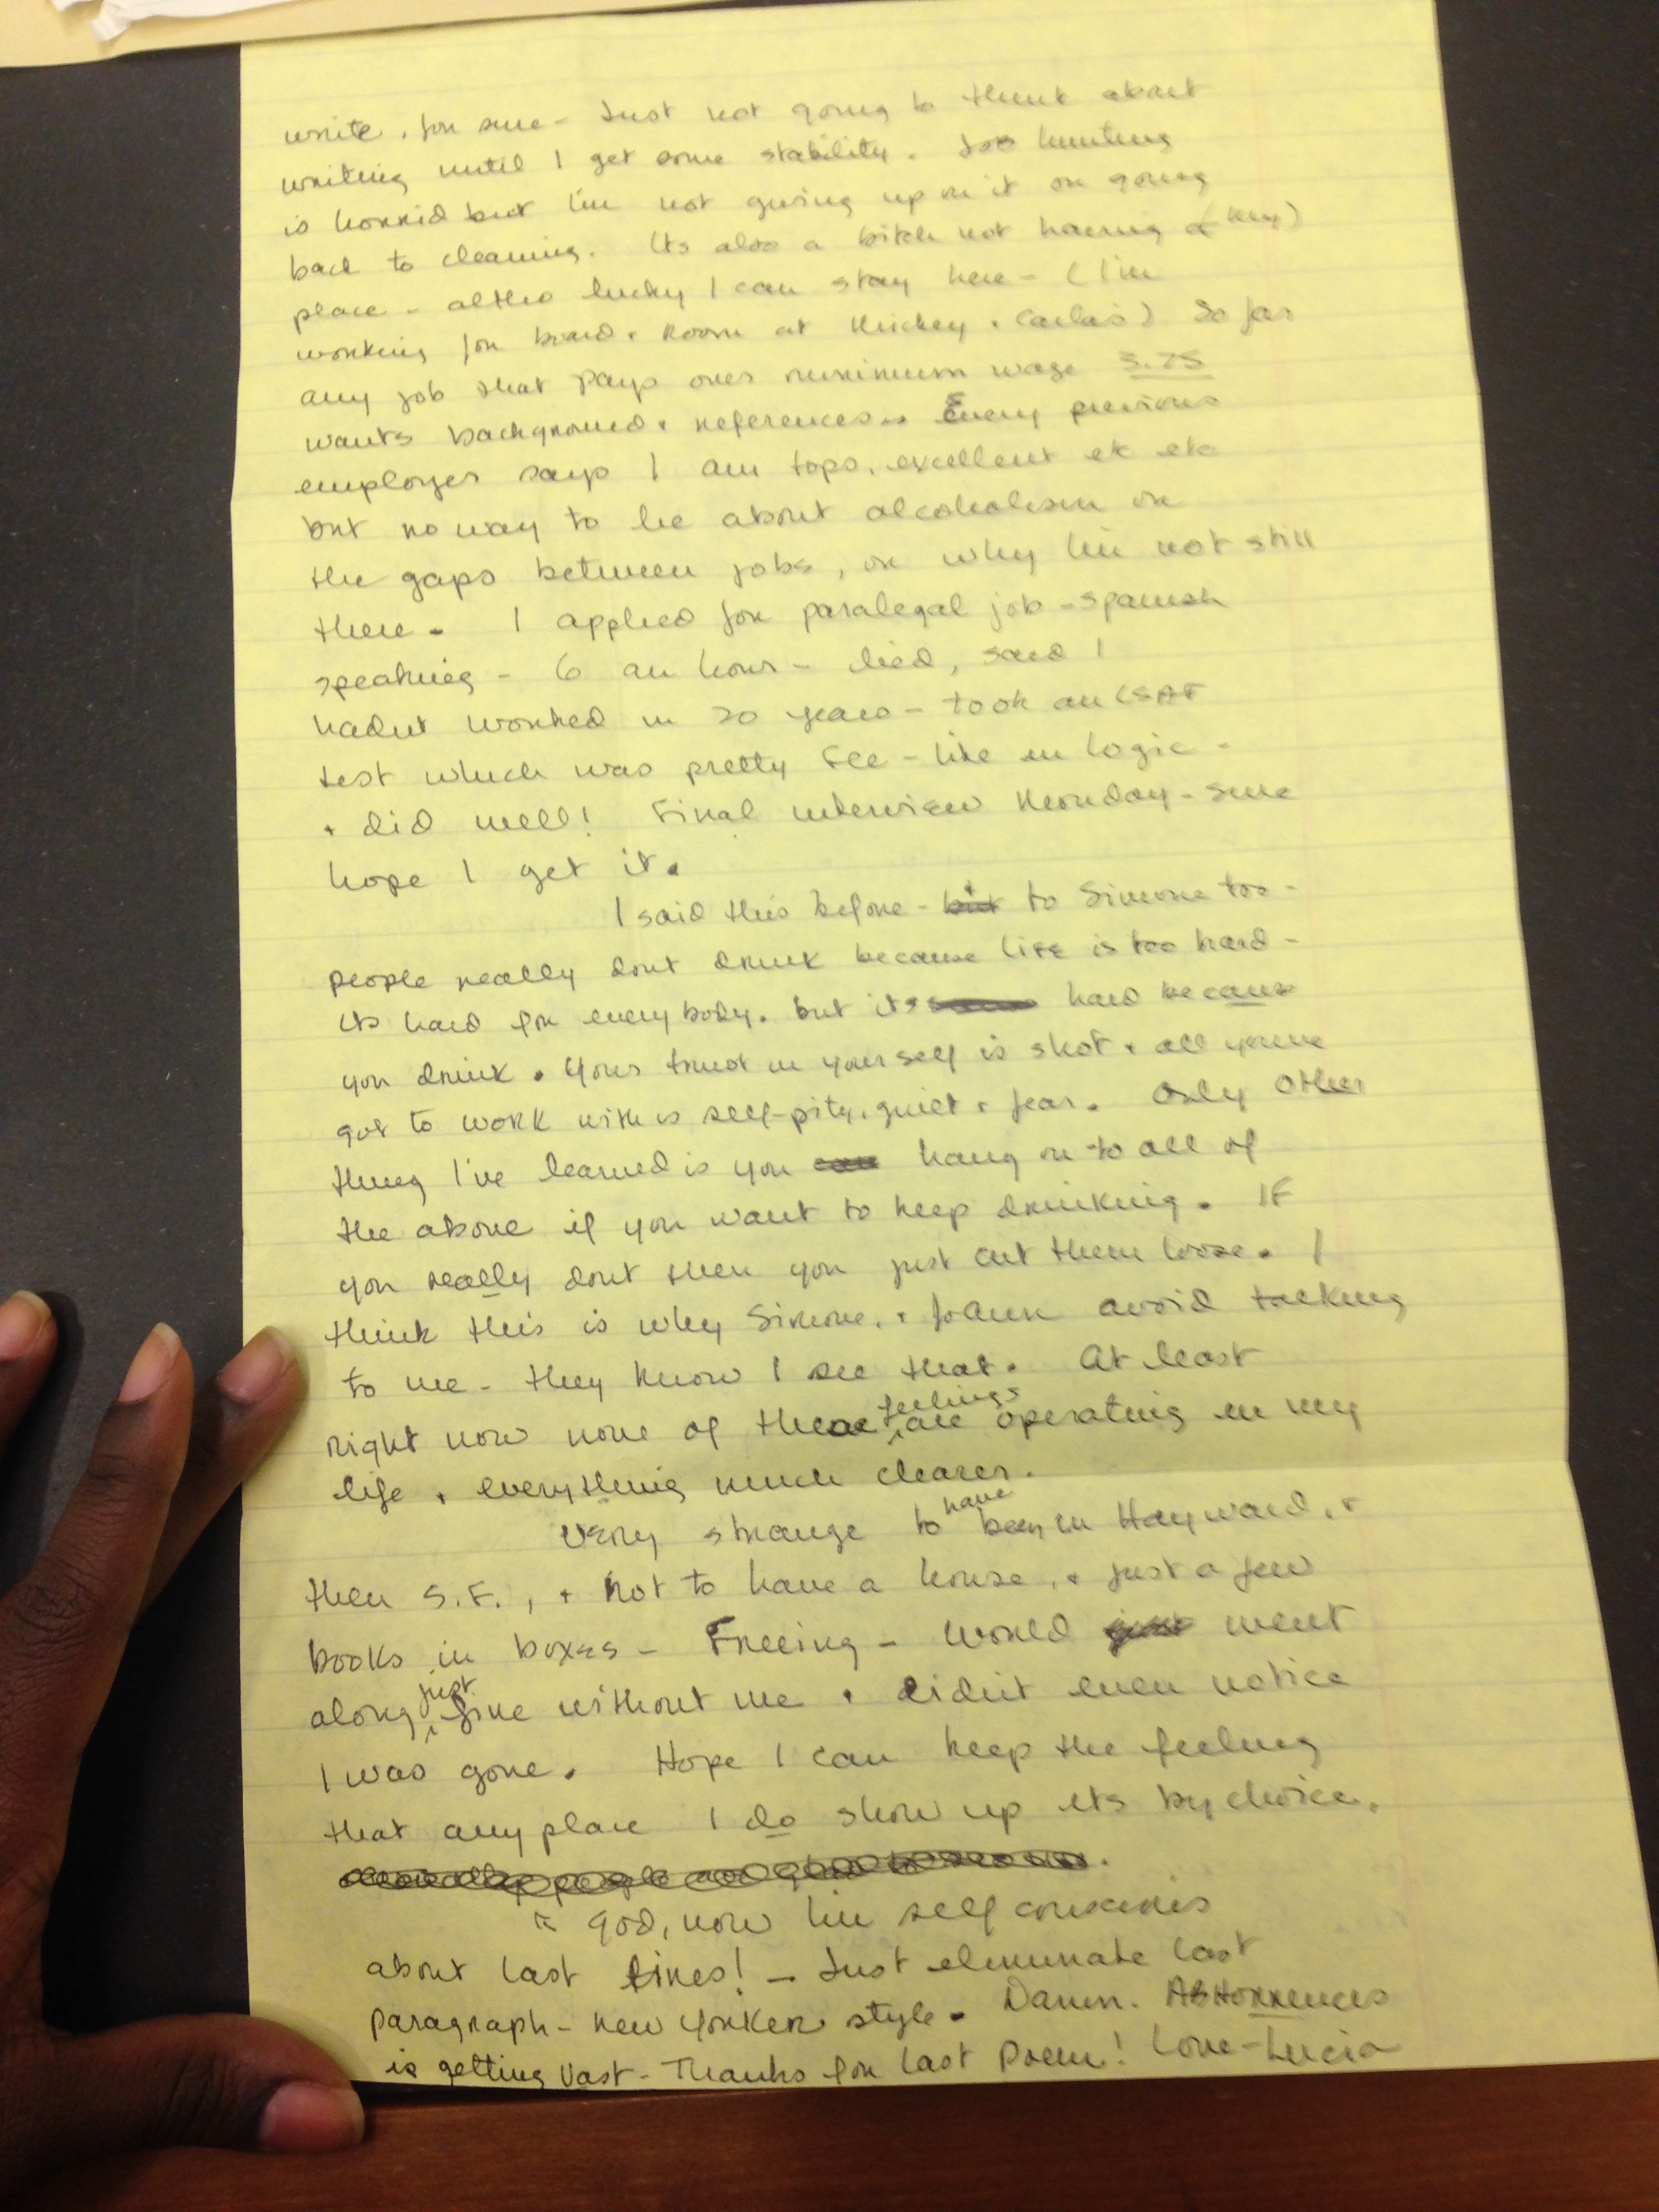 write, for sure - Just not going to think about
writing until I get some stability. Job hunting
is horrid but I'm not giving up on it or going
back to cleaning. Its also a bitch not having a (my)
place - altho lucky I can stay here - (I'm
working for board + room at Mickey + Carla's) So far
any job that pays over minimum wage 3.75
wants background + references. Every previous
employer says I am tops, excellent etc etc
but no way to lie about alcoholism or
the gaps between jobs, or why I'm not still
there. I applied for paralegal job - spanish
speaking - 6 an hour - lied, said I
hadnt worked in 20 years - took an LSAT
test which was pretty - like in logic -
+ did well! Final interview Monday - sure
hope I get it.
I said this before - to Simone too -
people really dont drink because life is too hard -
its hard for everybody. but its hard because
you drink. Your trust in yourself is shot + all youve
got to work with is self-pity, guilt + fear. Only other
thing I've learned is you hang on to all of
the above if you want to keep drinking. If
you really dont then you just cut them loose. I
think this is why Simone, + avoid talking
to me - they know I see that. At least
right now none of these feelings are operating in my
life + everything much clearer.
Very strange to have been in Hayward, +
then S.F., + not to have a house, + just a few
books in boxes - Freeing - World went
along just fine without me + didn't even notice
I was gone. Hope I can keep the feeling
that any place I do show up its by choice.
God, now I'm self conscious
about last lines! - Just eliminate last
paragraph - New Yorker style. Damn. Abhorrences
is getting vast - Thanks for last poem! Love - Lucia